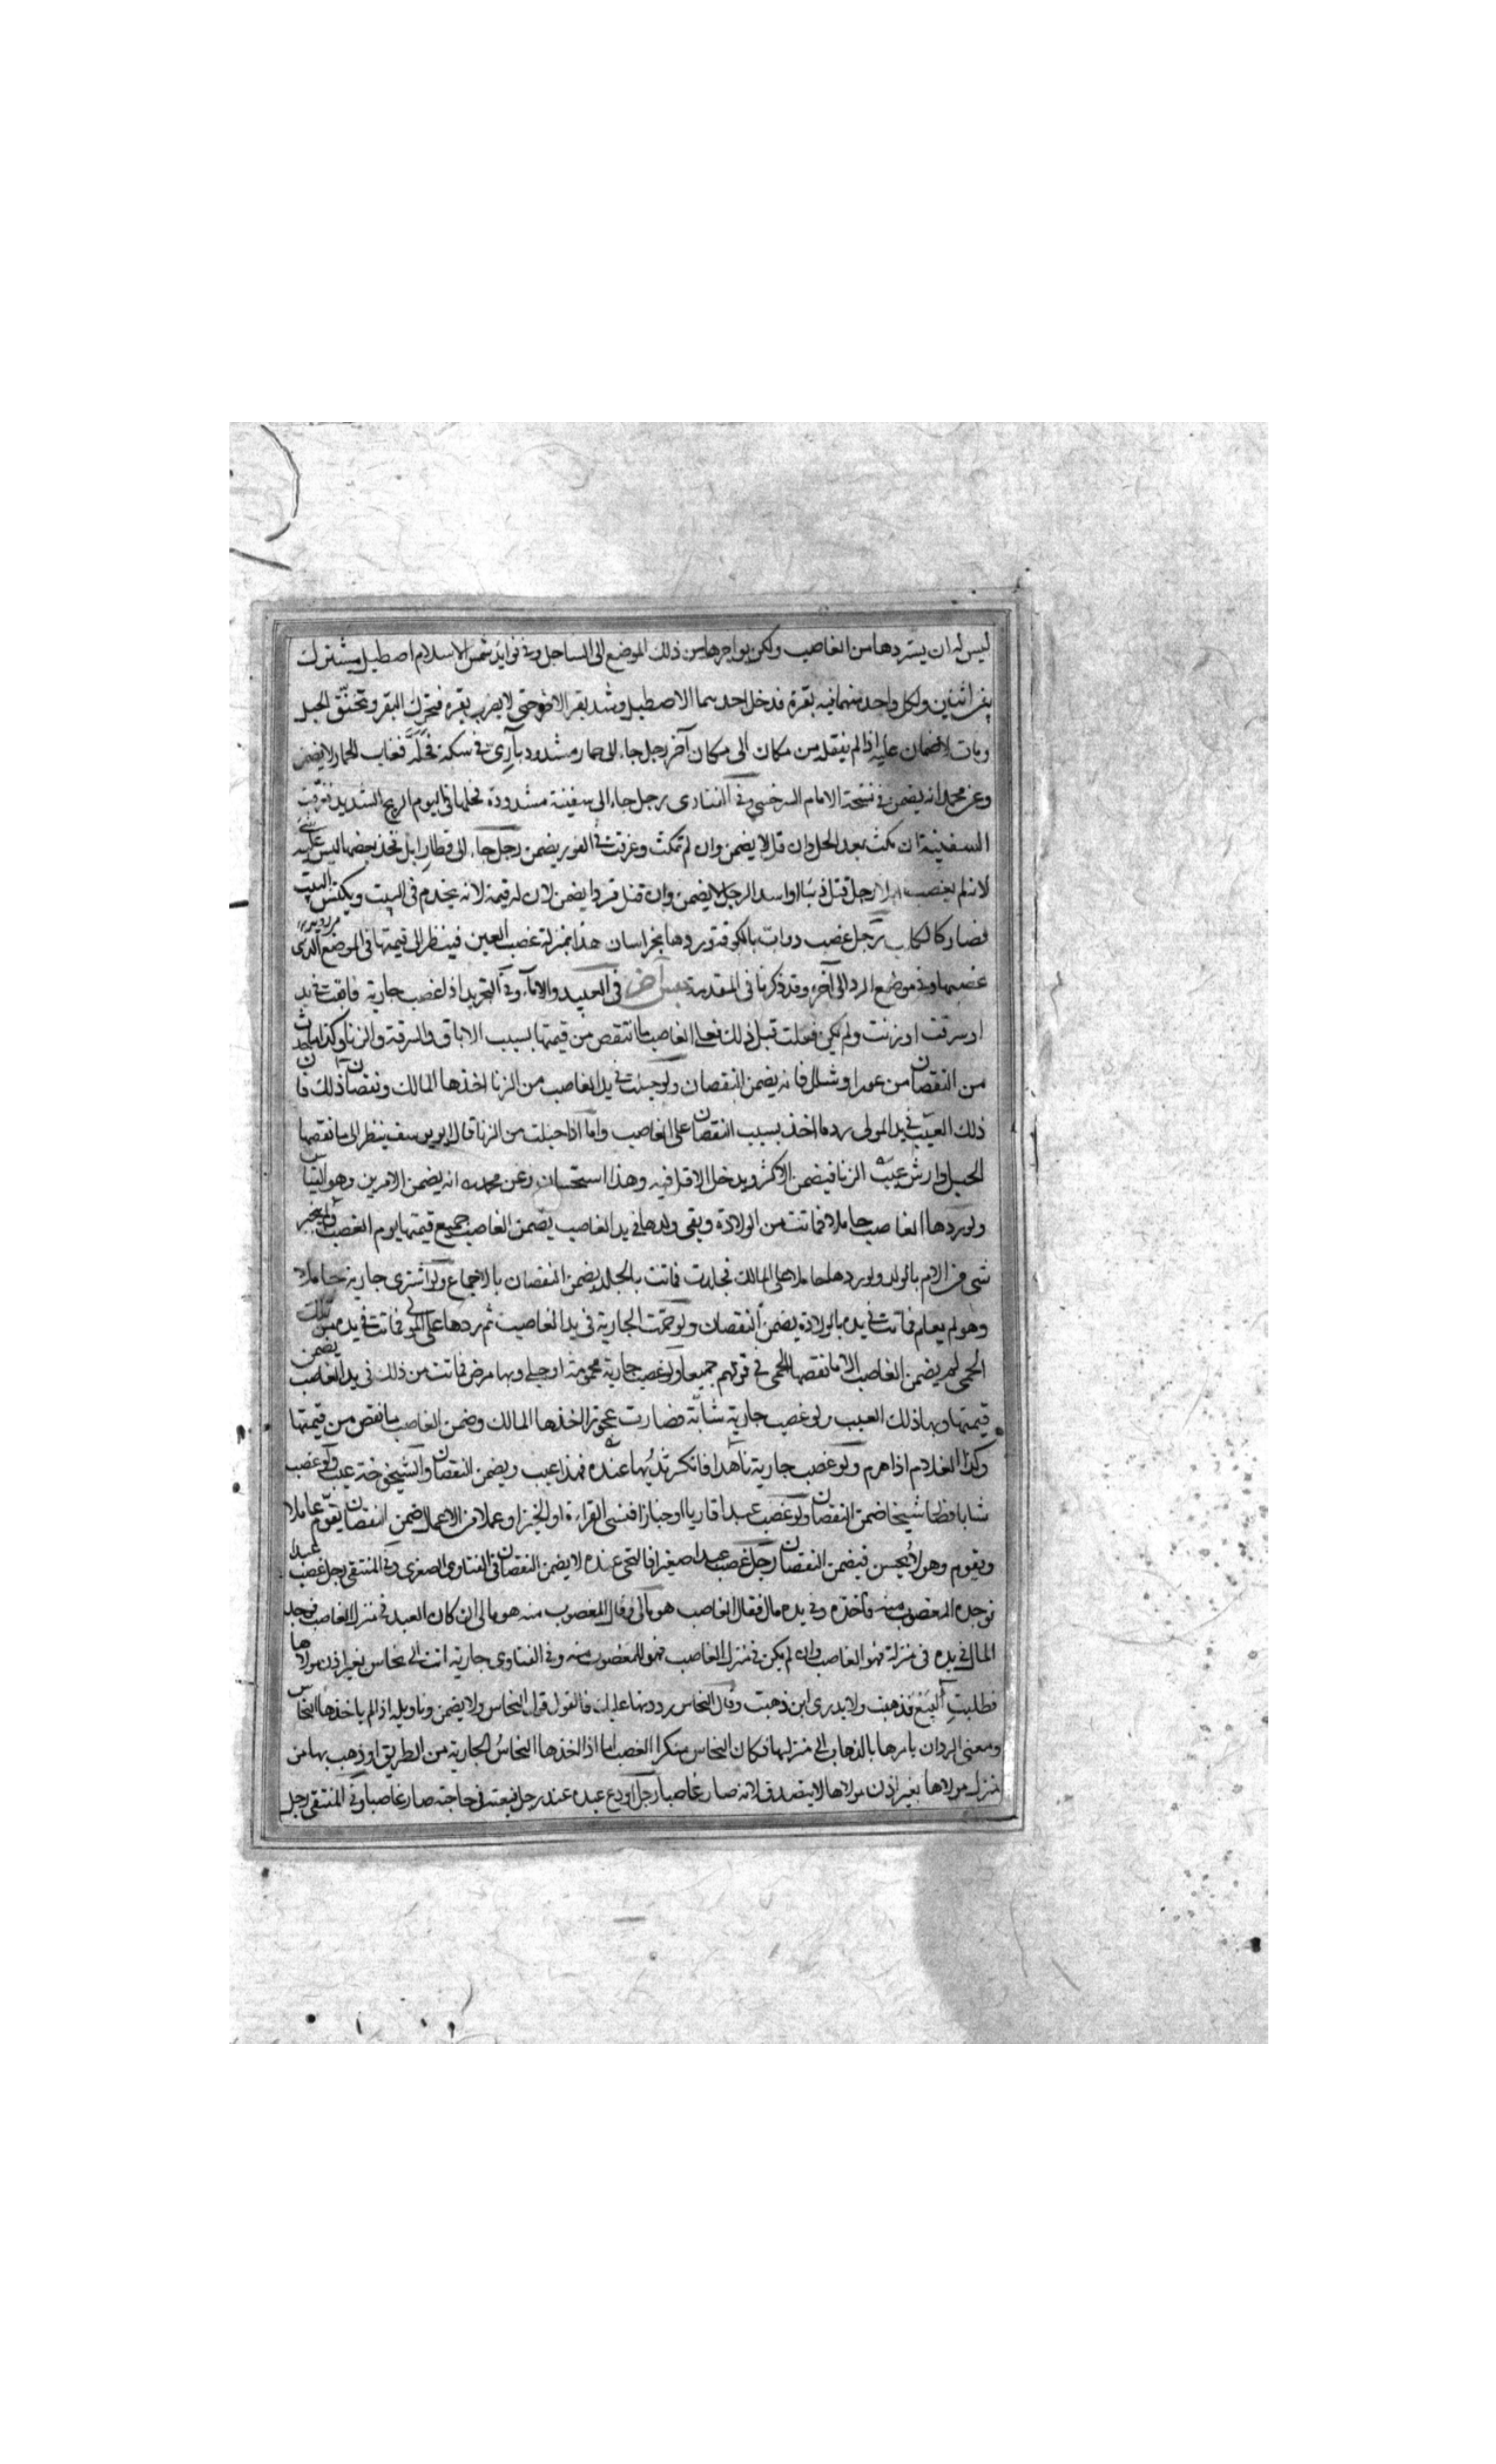 ليس له ان يستردها من الغاصب ولكن يواجرها من ذلك الموضع الى الساحل وفى فوايد شمس الاسلام اصطبل مشترك
بين اثنين ولكل واحد منهما فيه بقرة فدخل احدهما الاصطبل وشد بقر الاخر حتى لا يضرب بقره فتحرك البقر وتخنق الحبل
ومات لا ضمان عليه اذا لم ينقله من مكان الى مكان آخر رجل جاء الى حمار مشدود بآرى فى سكة فحله فغاب الحمار لا يضمن
وعن محمد انه يضمن فى نسخة الامام السرخسى وفى الفتاوى رجل جاء الى سفينة مشدودة فحلها فى اليوم الريح الشديد فغرقت
السفينة ان مكث بعد الحل وان قل لا يضمن وان لم تمكث وغرقت فى الفور يضمن رجل جاء الى قطار ابل فحل بعضها ليس عليه شئ
لانه لم يغصب ابلا رجل قتل ذئبا او اسد الرجل لا يضمن وان قتل قردا يضمن لان له قيمة لانه يخدم فى البيت ويكنس البيت
فصار كالكلب رجل غصب دواب بالكوفة ويردها بخراسان هذا بمنزلة غصب العين فينظر الى قيمتها فى الموضع الذى
غصبها وفى موضع الرد الى آخره وقد ذكرنا فى المقدمة جنس آخر فى العبيد والاماء وفى التجريد اذا غصب جارية فابقت فى يده
او سرقت او زنت ولم يكن فعلت قبل ذلك فعلى الغاصب ما انتقص من قيمتها بسبب الاباق والسرقة والزنا وكذا ما حدث
من النقصان من عور او شلل فانه يضمن النقصان ولو حبلت فى يد الغاصب من الزنا اخذها المالك ونقصان ذلك فان
ذلك العيب فى يد المولى رد ما اخذ بسبب النقصان على الغاصب واما اذا حبلت من الزنا قال ابو يوسف ينظر الى ما نقصها
الحبل وارش عيب الزنا فيضمن الاكثر ويدخل الاقل فيه وهذا استحسان وعن محمد انه يضمن الامرين وهو القياس
ولو ردها الغاصب حاملا فماتت من الولادة وبقى ولدها فى يد الغاصب يضمن الغاصب جميع قيمتها يوم الغصب لم يجبر
شى من الام بالولد ولو ردها حاملا على المالك فجلدت فماتت بالجلد يضمن النقصان بالاجماع ولو اشترى جارية حاملا
وهو لم يعلم فماتت فى يده بالولادة يضمن النقصان ولو حمت الجارية فى يد الغاصب ثم ردها على المولى فماتت فى يده من تلك
الحمى لم يضمن الغاصب الا ما نقصها الحمى فى قولهم جميعا ولو غصب جارية محمومة او حبلى وبها مرض فماتت من ذلك فى يد الغاصب يضمن
قيمتها وبها ذلك العيب ولو غصب جارية شابة فصارت عجوزا اخذها المالك وضمن الغاصب ما نقص من قيمتها
وكذا الغلام اذا هرم ولو غصب جارية ناهدا فانكسر ثديها عنده فهذا عيب ويضمن النقصان والشيخوخة عيب ولو غصب
شابا فصار شيخا ضمن النقصان ولو غصب عبدا قاريا او خبازا فنسى القراءة او الخبز او عملا من الاعمال ضمن النقصان يقوم عاملا
ويقوم وهو لا يحسن فيضمن النقصان رجل غصب عبدا صغيرا فالتحى عنده لا يضمن النقصان فى الفتاوى الصغرى وفى المنتقى رجل غصب عبدا
فوجده المغصوب منه فاخذه وفى يده مال فقال الغاصب هو مالى وقال المغصوب منه هو مالى ان كان العبد فى منزل الغاصب فوجد
المال فى يده فى منزله فهو للغاصب وان لم يكن فى منزل الغاصب فهو للمغصوب منه وفى الفتاوى جارية اتت الى نخاس بغير اذن مولاها
فطلبت البيع فذهبت ولا يدرى اين ذهبت وقال النخاس رددتها عليك فالقول قول النخاس ولا يضمن وتاويله اذا لم ياخذها النخاس
ومعنى الرد ان يامرها بالذهاب الى منزلها فكان النخاس منكرا الغصب اما اذا اخذها النخاس الجارية من الطريق او ذهب بها من
منزل مولاها بغير اذن مولاها لا يصدق لانه صار غاصبا رجل اودع عبده عند رجل فبعثه فى حاجته صار غاصبا وفى المنتقى رجل